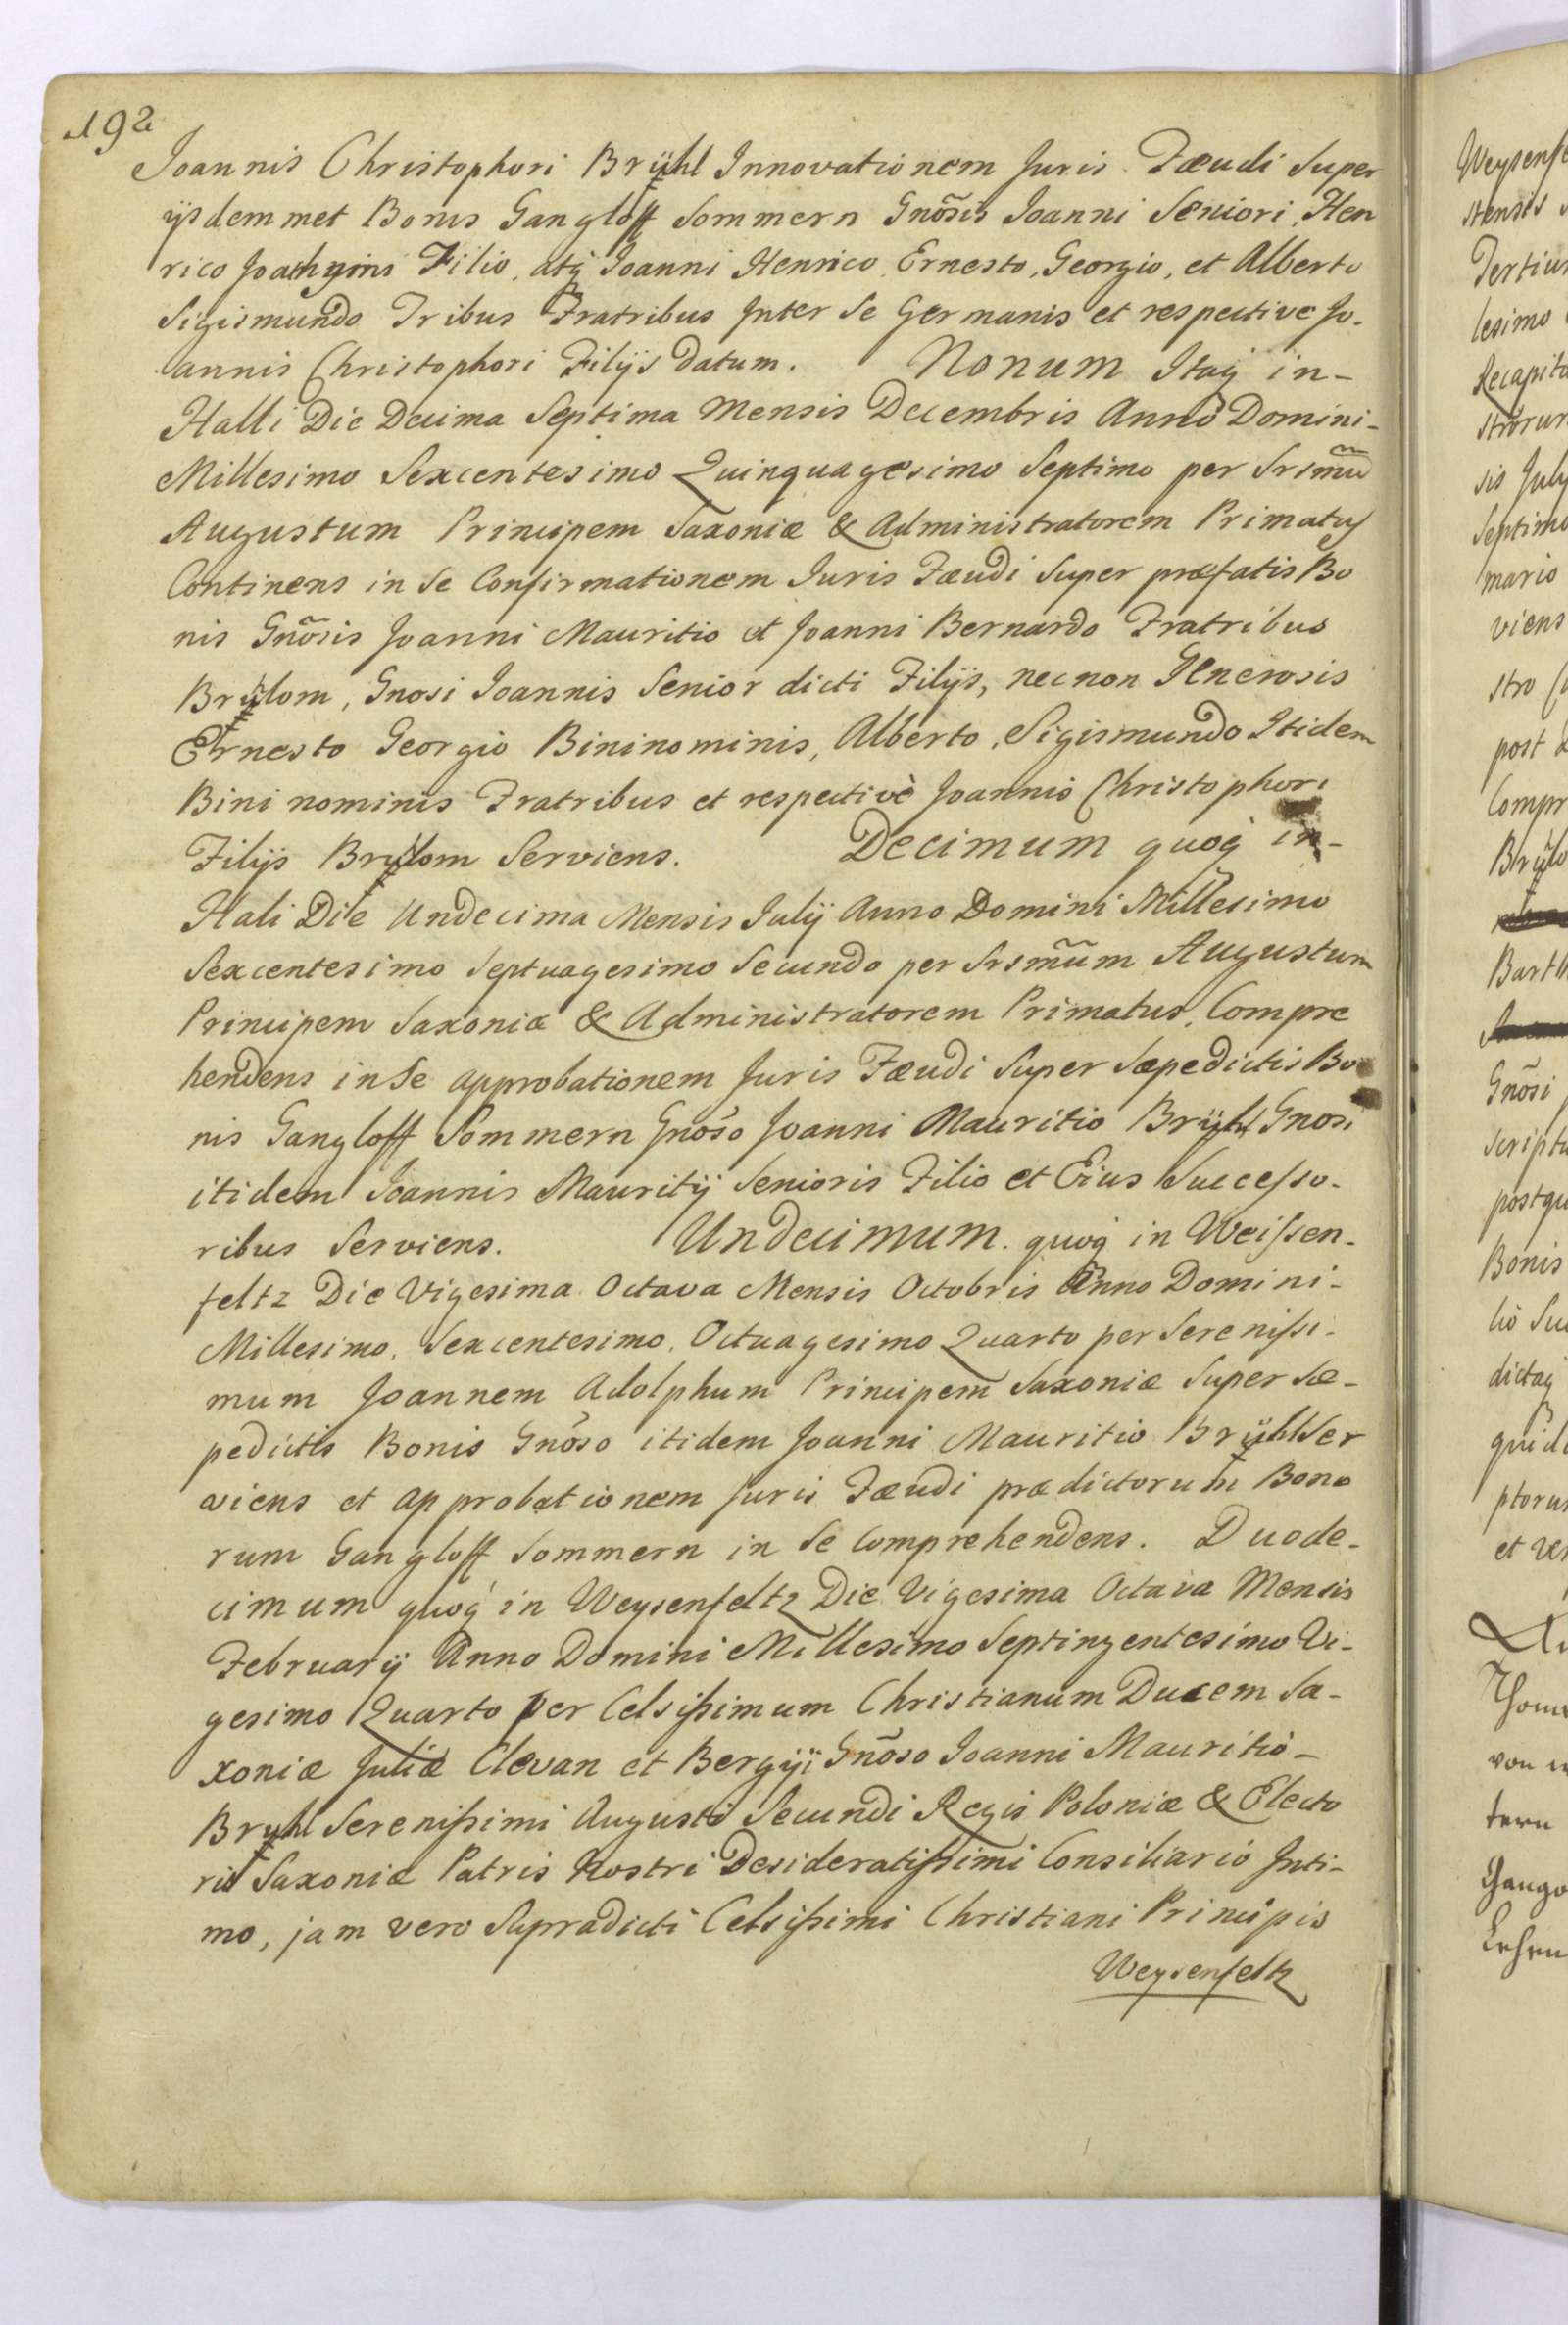 192
Joannis Christophori Brÿhl Innovationem Juris Fæudi Super
ijsdemmet Bonis Gangloff Sommern Gnõsis Joanni Seniori, Hen
rico Filio, atq Joanni Henrico, Ernesto, Georgio, et Alberto
Sigismundo Tribus Fratribus Inter Se Germanis et respective Jo-
annis Christophori Filijs datum. Nonum Itaq in-
Halli Die Decima Septima Mensis Decembris Anno Domini-
Millesimo Sexcentesimo Quinquagesimo Septimo per Srsmũ
Augustum Principem Saxoniæ & Administratorem Primatus
Continens in Se Confirmationem Juris Fæudi Super præfatis Bo
nis Gnõsis Joanni Mauritio et Joanni Bernardo Fratribus
Brÿlom, Gnosi Joannis Senior dicti Filijs, necnon Generosis
Ernesto Georgio Bininominis, Alberto, Sigismundo Itidem
Bini nominis Fratribus et respectivè Joannis Christophori
Filijs Brÿlom Serviens. Decimum quoq in-
Hali Die Undecima Mensis Julij Anno Domini Millesimo
Sexcentesimo Septuagesimo Secundo per Srsmũm Augustum
Principem Saxoniæ & Administratorem Primatus, Compre
hendens in Se approbationem Juris Fæudi Super Sæpedictis Bo
nis Gangloff Sommern Gnõso Joanni Mauritio Brÿhl Gnosi
itidem Joannis Mauritij Senioris Filio et Eius Successo-
ribus Serviens. Undecimum quoq in Weissen-
feltz Die Vigesima Octava Mensis Octobris Anno Domini-
Millesimo, Sexcentesimo, Octuagesimo Quarto per Serenissi-
mum Joannem Adolphum Principem Saxoniæ Super Sæ-
pedictis Bonis Gnõso itidem Joanni Mauritio Brÿhl Ser
viens et approbationem Juris Fæudi prædictorum Bono
rum Gangloff Sommern in Se Comprehendens. Duode-
cimum quoq in Weysenfeltz Die Vigesima Octava Mensis
Februarij Anno Domini Millesimo Septingentesimo Vi-
gesimo Quarto per Celsissimum Christianum Ducem Sa-
xoniæ Juliæ Clevan et Bergÿi Gnõso Joanni Mauritio-
Bryhl Serenissimi Augusti Secundi Regis Poloniæ & Electo
ris Saxoniæ Patris Nostri Desideratissimi Consiliario Inti-
mo, jam vero Supradicti Celsissimi Christiani Principis
Weysenfeltz